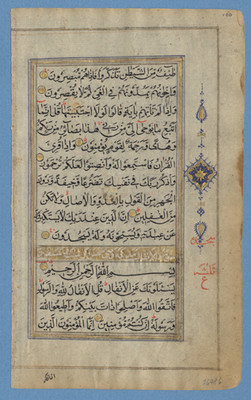 طٰٓئِفٌ مِنَ الشَّيْطٰنِ تَذَكَّرُوا فَاِذَا هُمْ مُبْصِرُونَ
وَاِخْوَانُهُمْ يَمُدُّونَهُمْ فِي الْغَيِّ ثُمَّ لَا يُقْصِرُونَ
وَاِذَا لَمْ تَأْتِهِمْ بِاٰيَةٍ قَالُوا لَوْلَا اجْتَبَيْتَهَا قُلْ اِنَّمَا
اَتَّبِعُ مَا يُوحٰى اِلَيَّ مِنْ رَبِّي هٰذَا بَصَائِرُ مِنْ رَبِّكُمْ
وَهُدًى وَرَحْمَةٌ لِقَوْمٍ يُؤْمِنُونَ وَاِذَا قُرِئَ
الْقُرْاٰنُ فَاسْتَمِعُوا لَهُ وَاَنْصِتُوا لَعَلَّكُمْ تُرْحَمُونَ
وَاذْكُرْ رَبَّكَ فِي نَفْسِكَ تَضَرُّعًا وَخِيفَةً وَدُونَ
الْجَهْرِ مِنَ الْقَوْلِ بِالْغُدُوِّ وَالْاٰصَالِ وَلَا تَكُنْ
مِنَ الْغَافِلِينَ اِنَّ الَّذِينَ عِنْدَ رَبِّكَ لَا يَسْتَكْبِرُونَ
عَنْ عِبَادَتِهِ وَيُسَبِّحُونَهُ وَلَهُ يَسْجُدُونَ
بِسْمِ اللّٰهِ الرَّحْمٰنِ الرَّحِيمِ
يَسْئَلُونَكَ عَنِ الْاَنْفَالِ قُلِ الْاَنْفَالُ لِلّٰهِ وَالرَّسُولِ
فَاتَّقُوا اللّٰهَ وَاَصْلِحُوا ذَاتَ بَيْنِكُمْ وَاَطِيعُوا اللّٰهَ
وَرَسُولَهُ اِنْ كُنْتُمْ مُؤْمِنِينَ اِنَّمَا الْمُؤْمِنُونَ الَّذِينَ